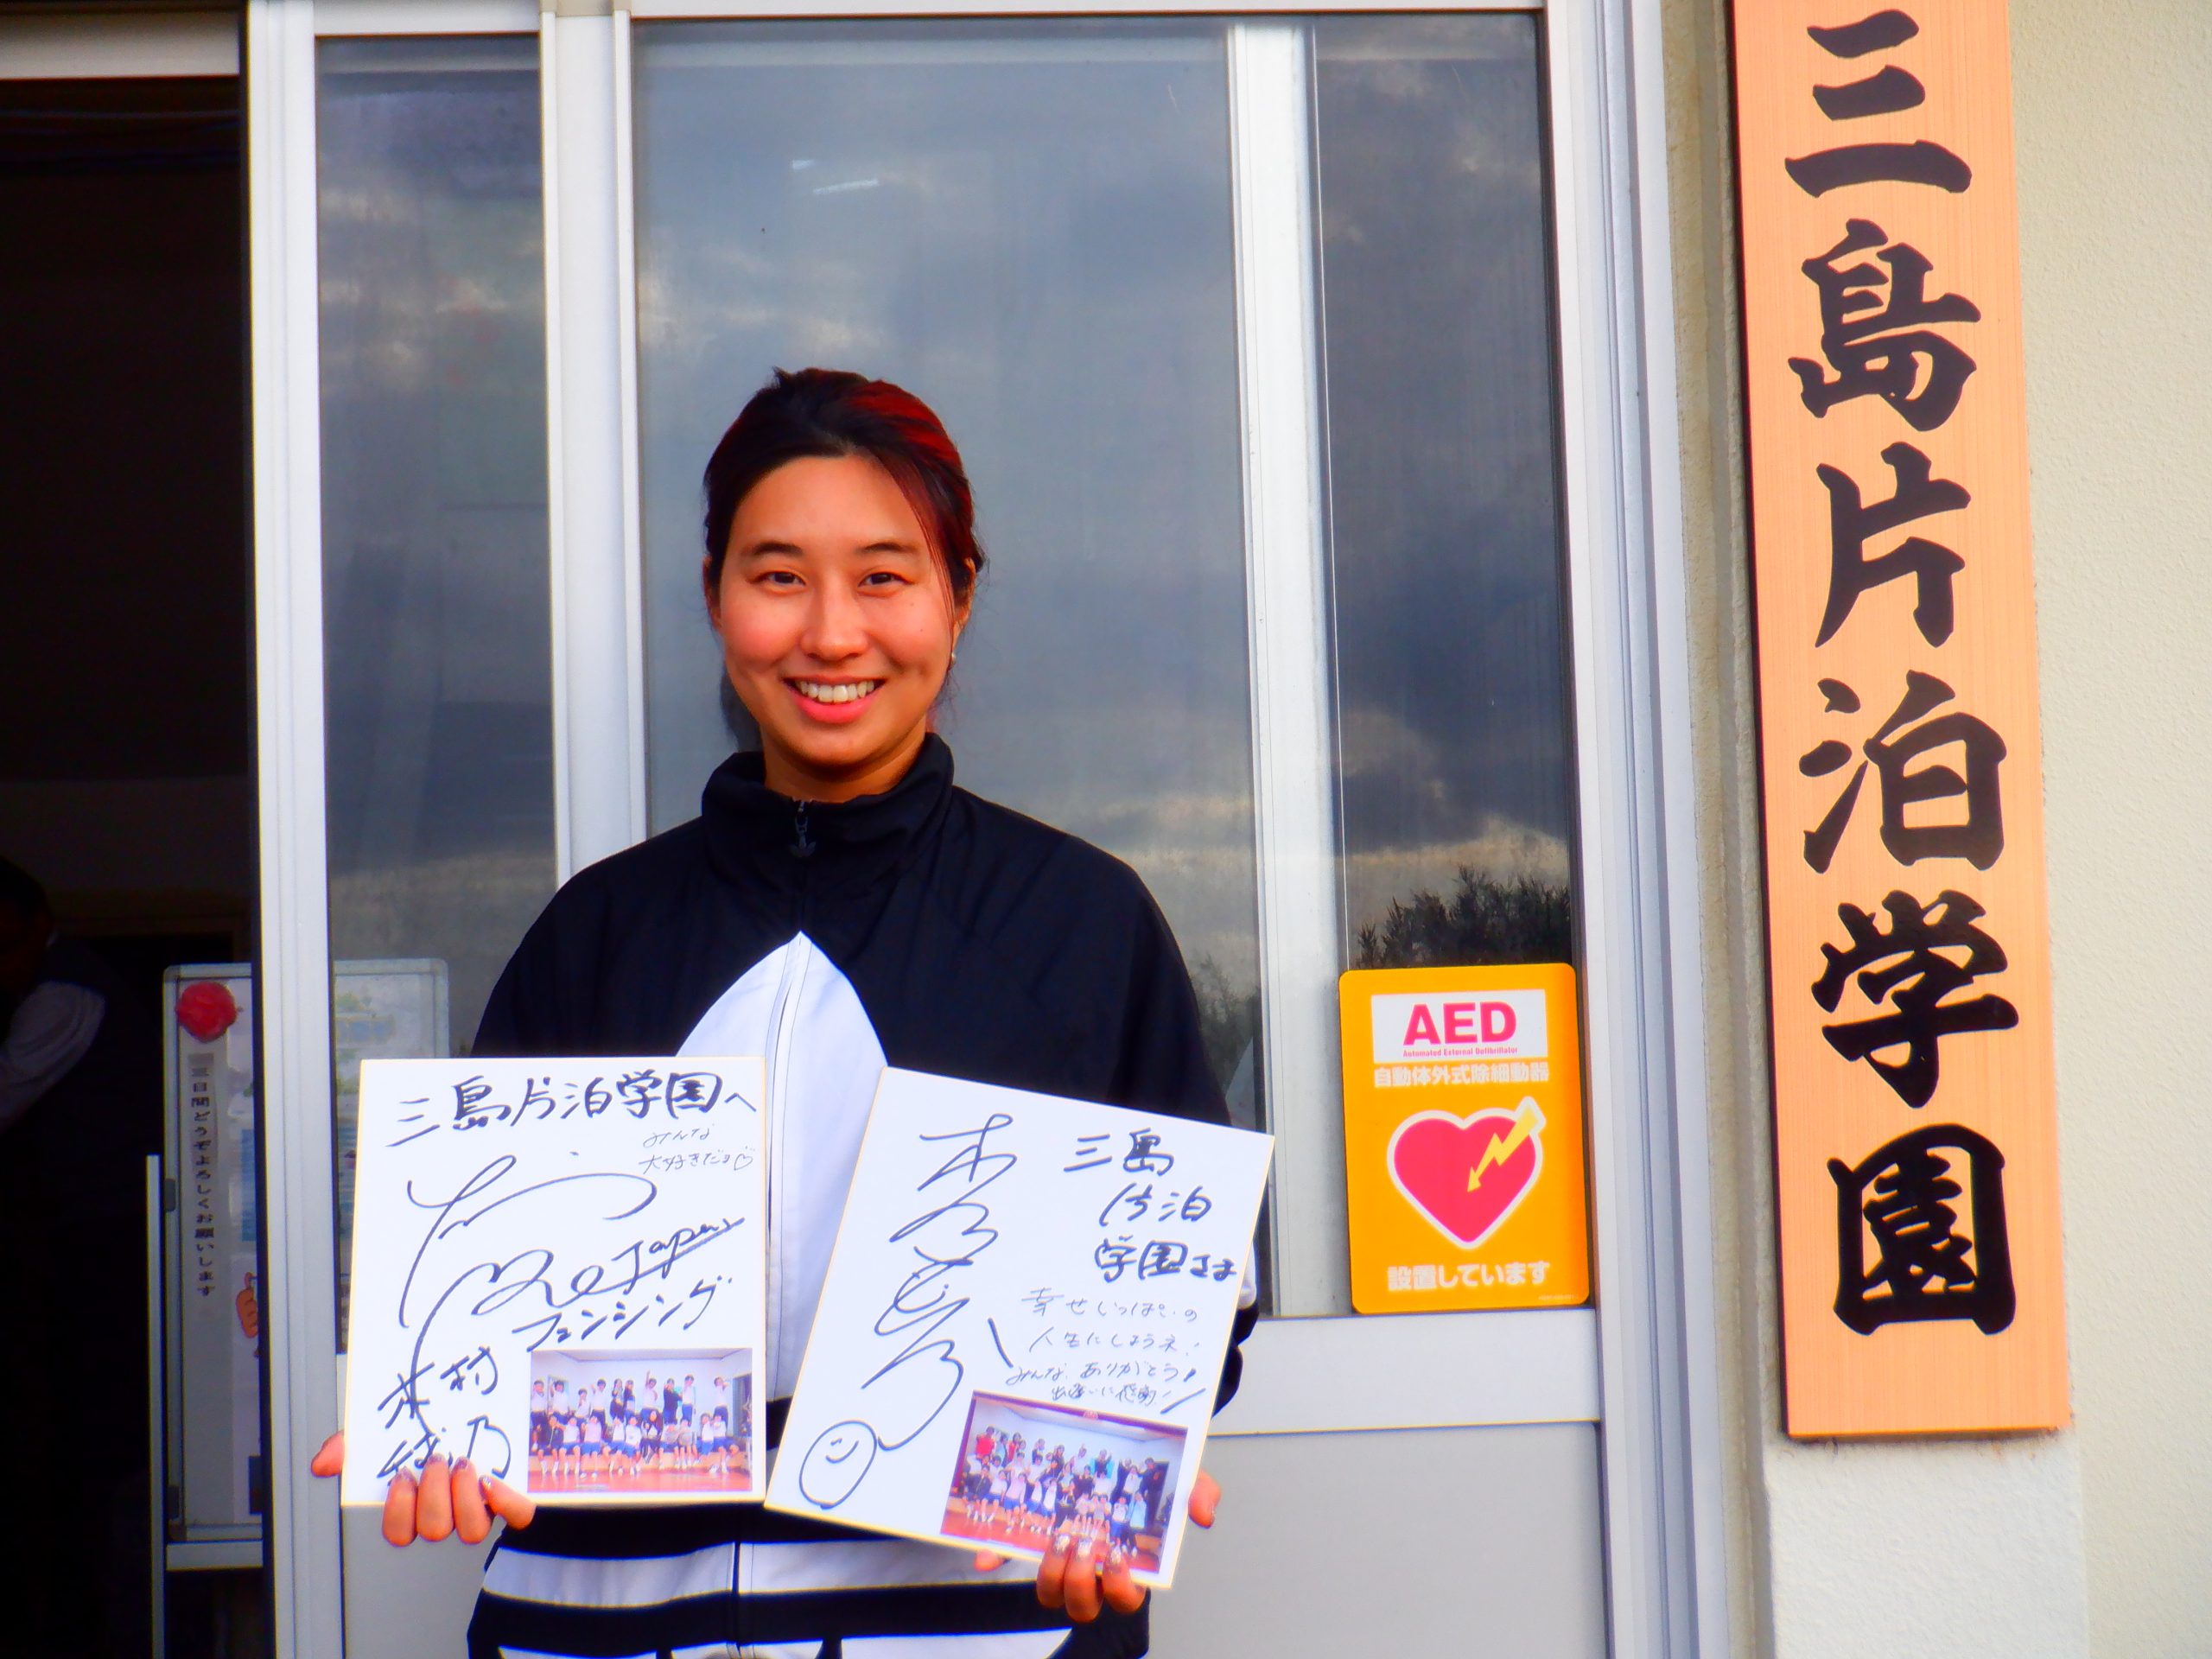 三島片泊学園
AED
Automated External Defibrillator
自動体外式除細動器
設置しています
三島片泊学園へ
みんな
大好きだヨ♡
Japan
フェンシング
三島
片泊
学園さま
幸せいっぱいの
人生にしようネ!
みんな、ありがとう!
出逢いに感謝!
三日間どうぞよろしくお願いします